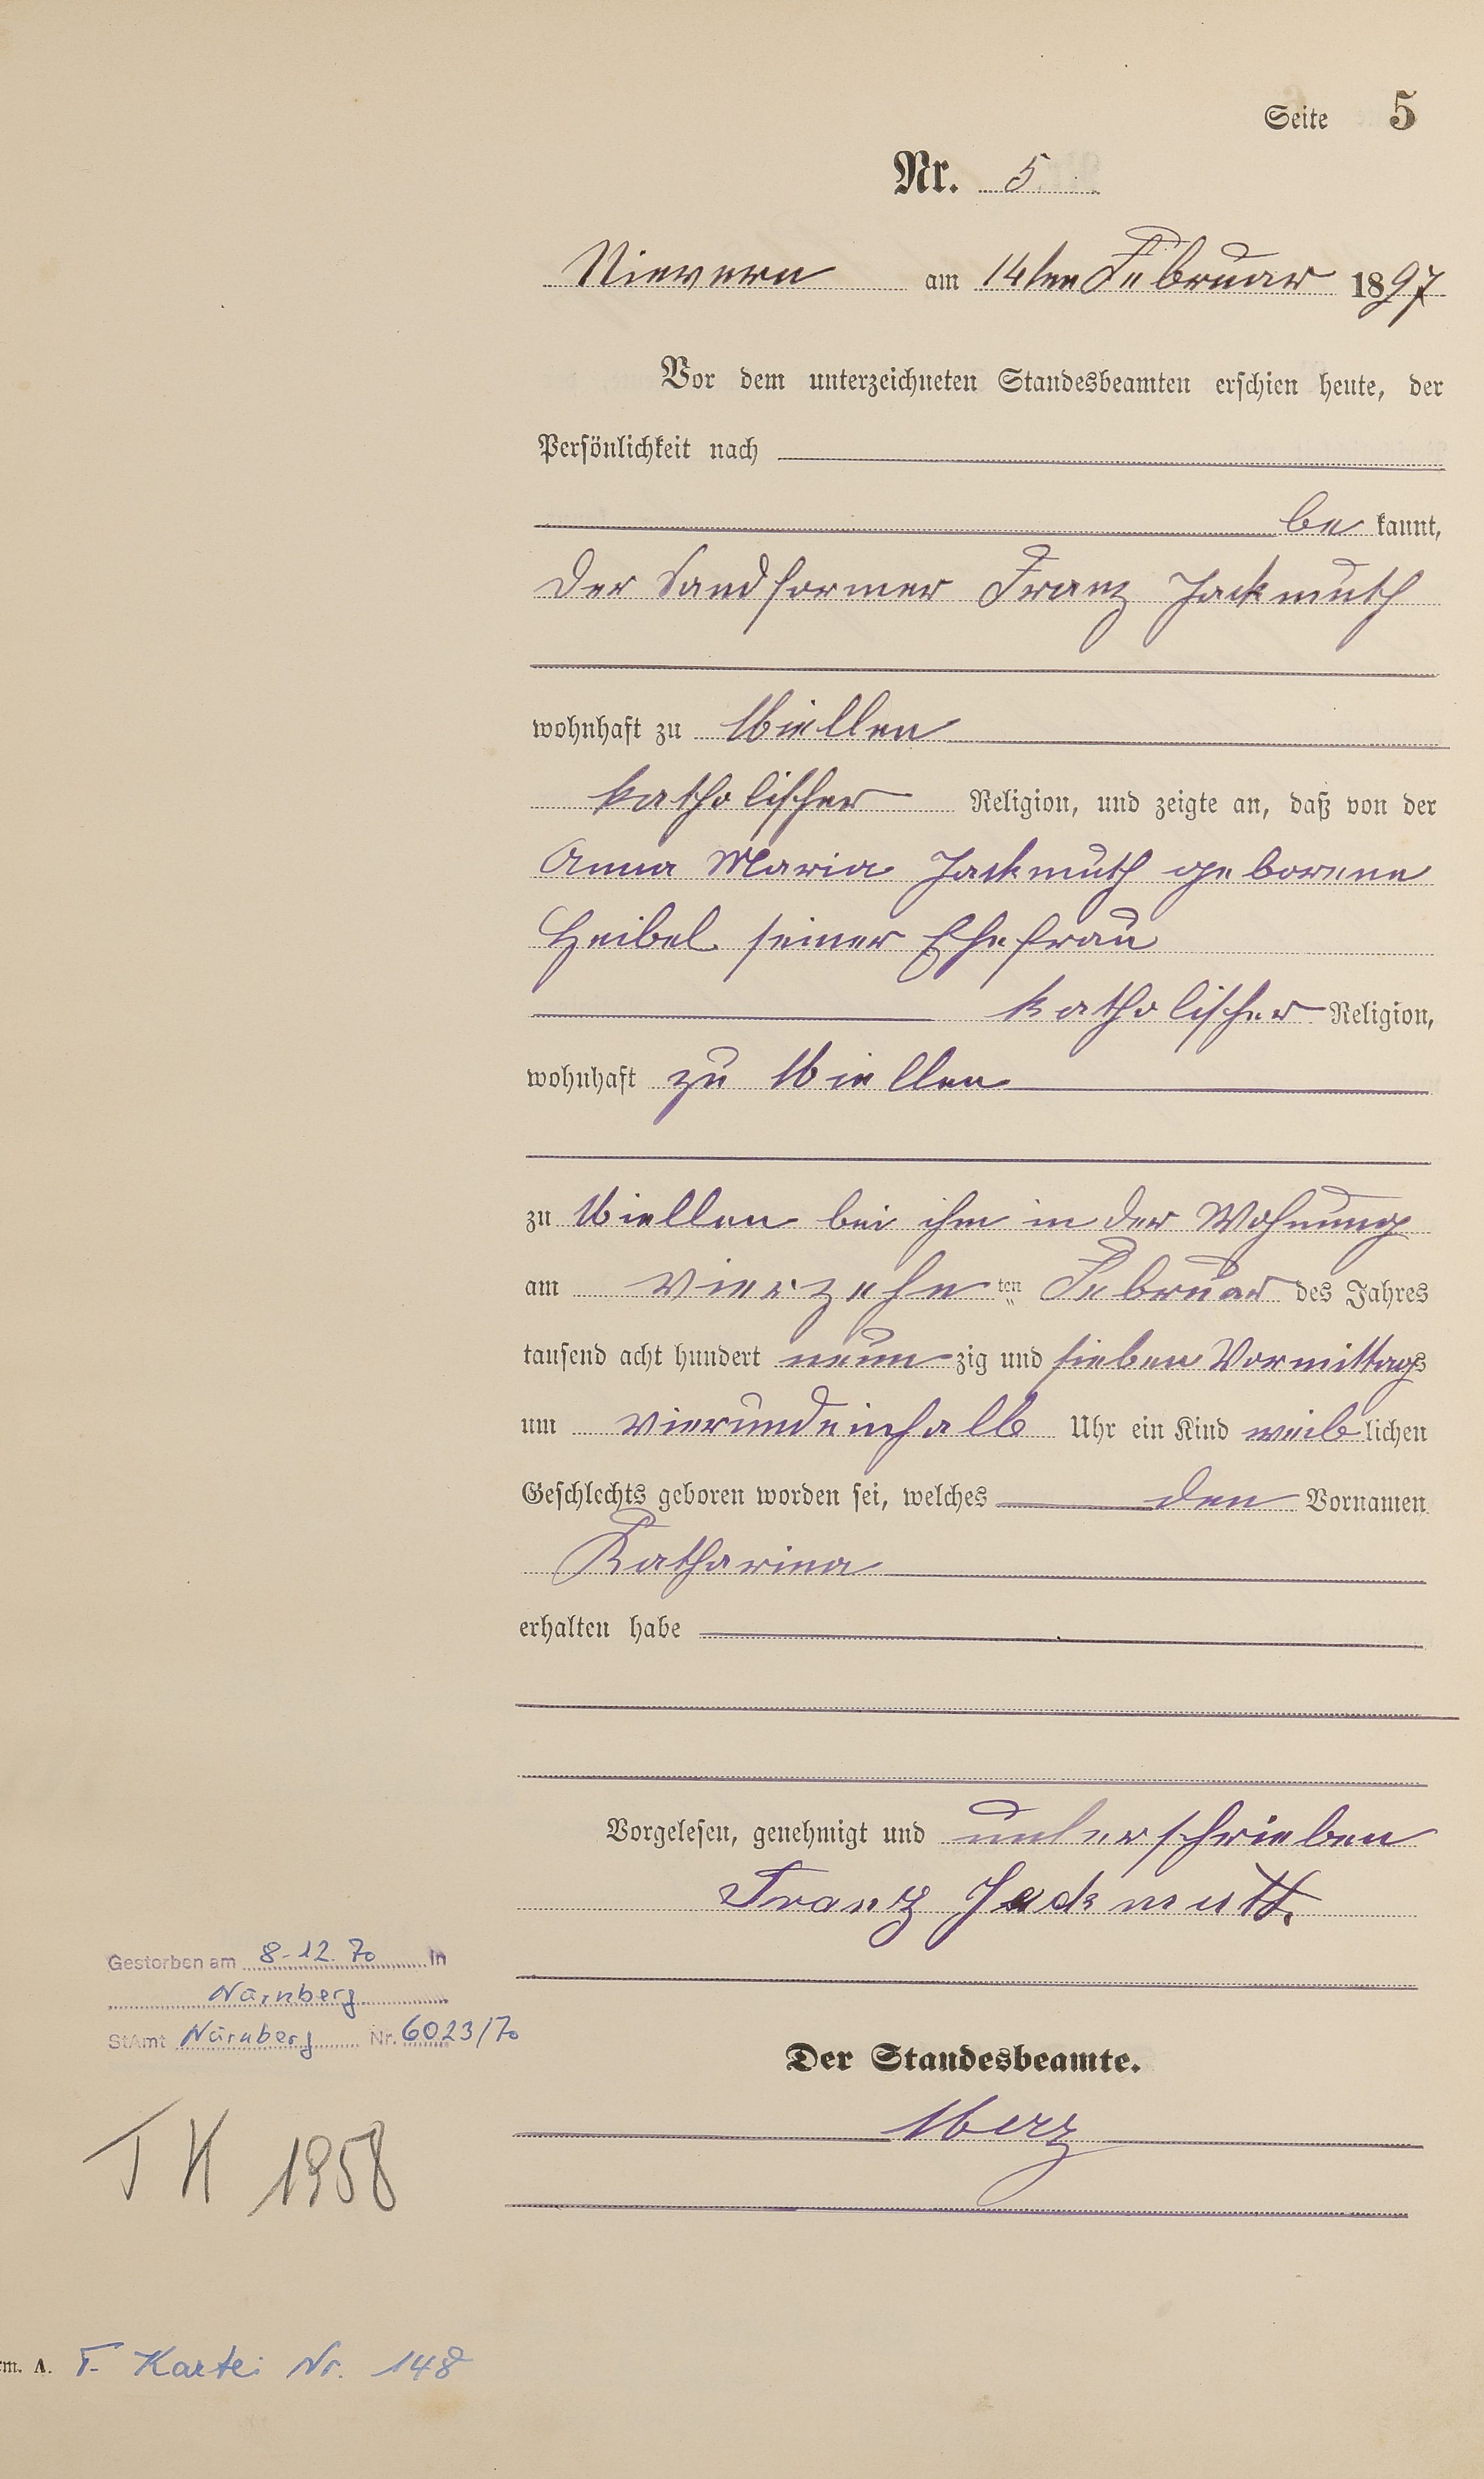 Seite 5
Nr. 5
Nievern am 14ten Februar 1897
Vor dem unterzeichneten Standesbeamten erschien heute, der
Persönlichkeit nach
be kannt,
der Sandformer Franz Jackmuth
wohnhaft zu Miellen
katholischer Religion, und zeigte an, daß von der
Anna Maria Jackmuth geborene
Heibel seiner Ehefrau
katholischer Religion,
wohnhaft zu Miellen
zu Miellen bei ihm in der Wohnung
am vierzehn ten Februar des Jahres
tausend acht hundert neun zig und sieben Vormittags
um vierundeinhalb Uhr ein Kind weib lichen
Geschlechts geboren worden sei, welches den Vornamen
Katharina
erhalten habe
Vorgelesen, genehmigt und unterschrieben
Franz Jackmuth.
Gestorben am 8-12.70 in
Nürnberg
StAmt Nürnberg Nr. 6023/70
Der Standesbeamte.
Merz
T K 1958
rm. A. T. Kartei Nr. 148